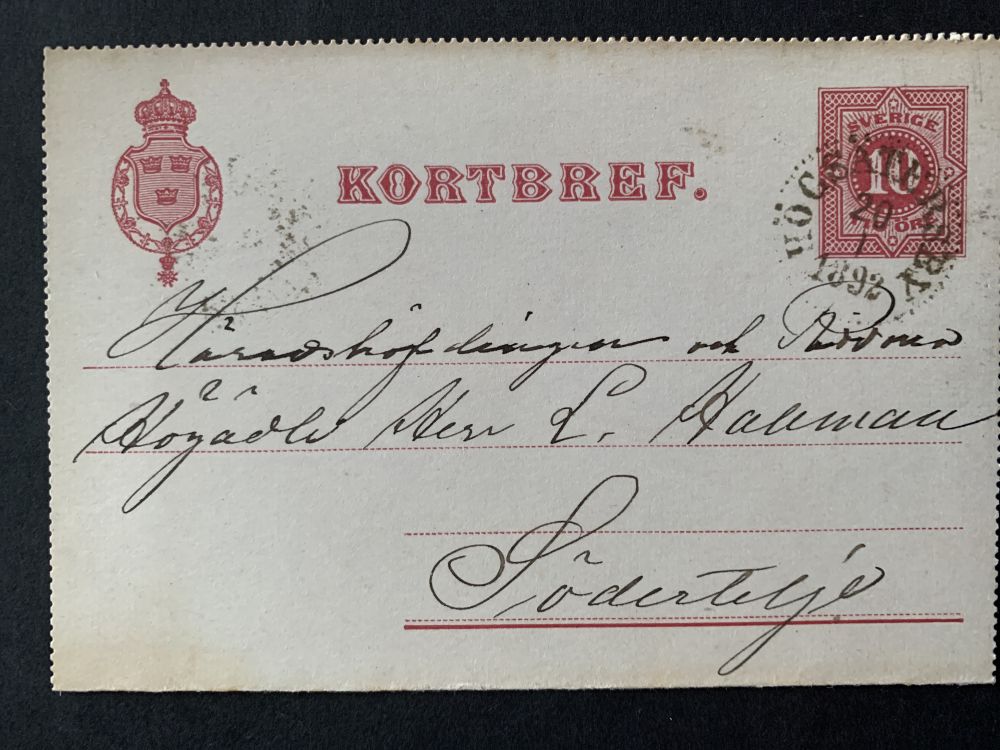 KORTBREF.
SVERIGE
10
ÖRE
20
1
1892
Häradshöfdingen och Riddaren
Högädle Herr L. Hahlman
Södertelje